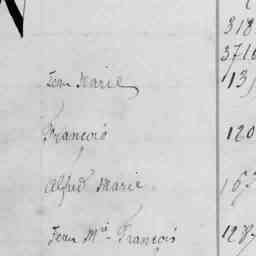 318
3716
Jean Marie 13
François 120
Alfred Marie 167
Jean Mie François 1287